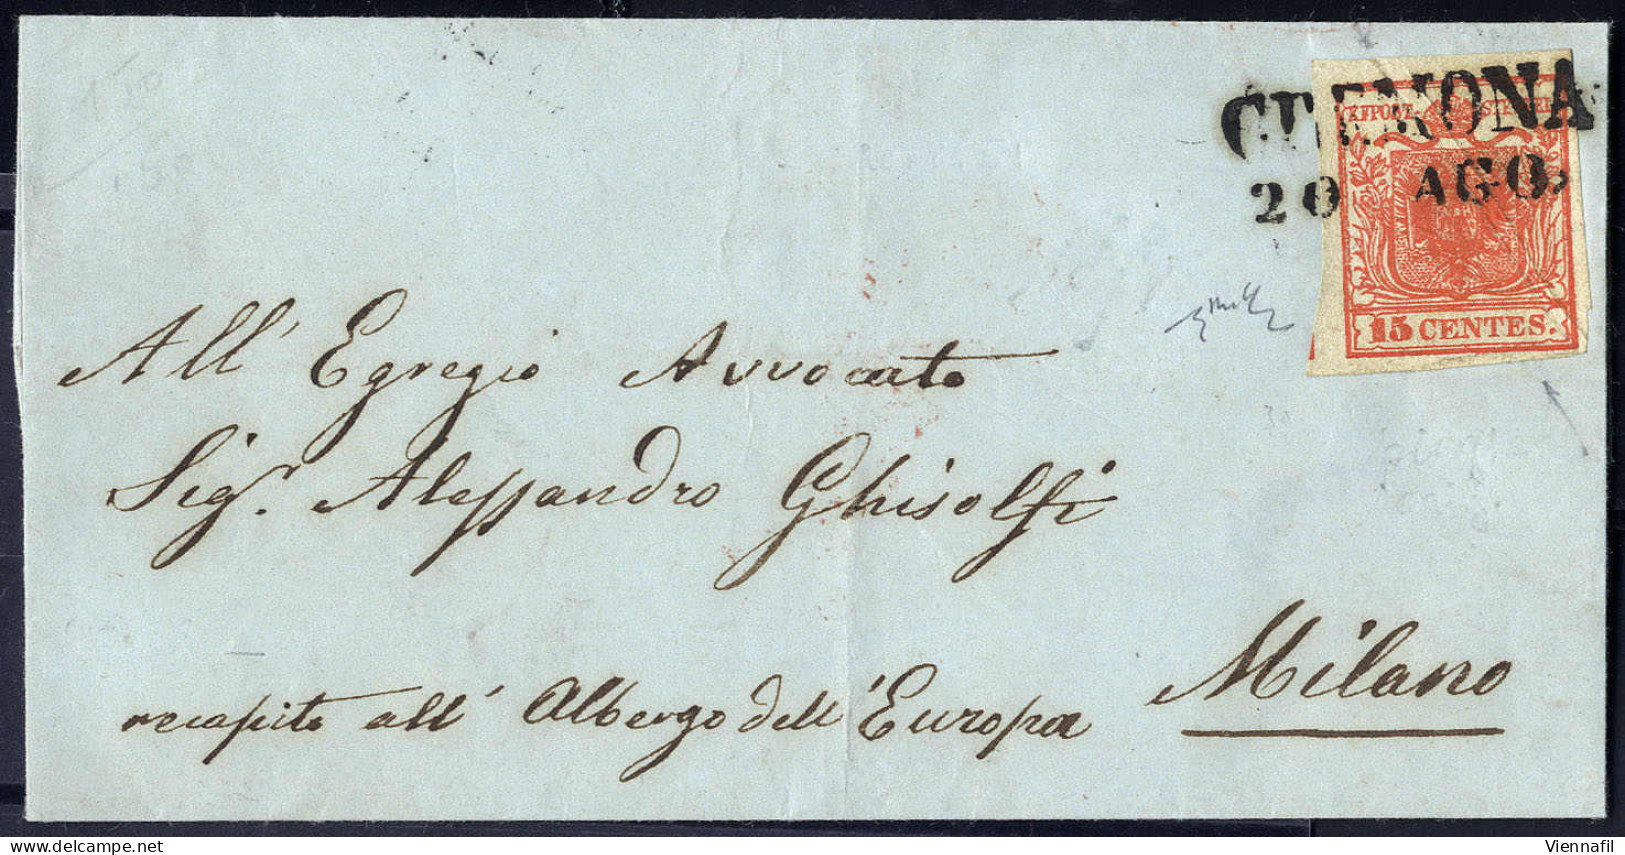 CREMONA
20 AGO.
K.K.POST-STEMPEL
15 CENTES.
All' Egregio Avvocato
Sig.r Alessandro Ghisolfi
Milano
recapito all' Albergo dell' Europa
Viennafil